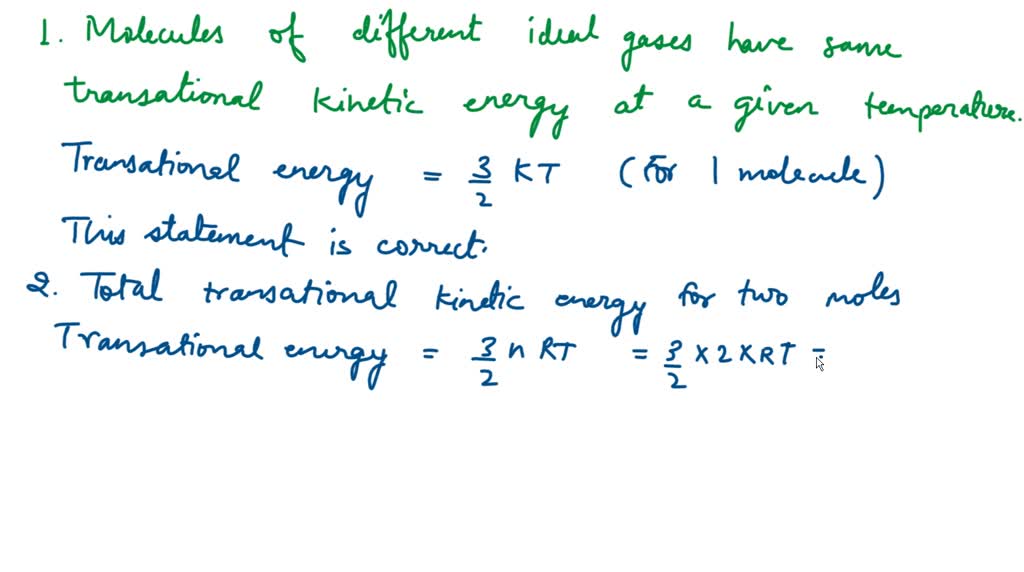 1. Molecules of different ideal gases have same
transational kinetic energy at a given temperature.
Transational energy = 3/2 KT (for 1 molecule)
This statement is correct.
2. Total transational kinetic energy for two moles
Transational energy = 3/2 n RT = 3/2 x 2 x RT =